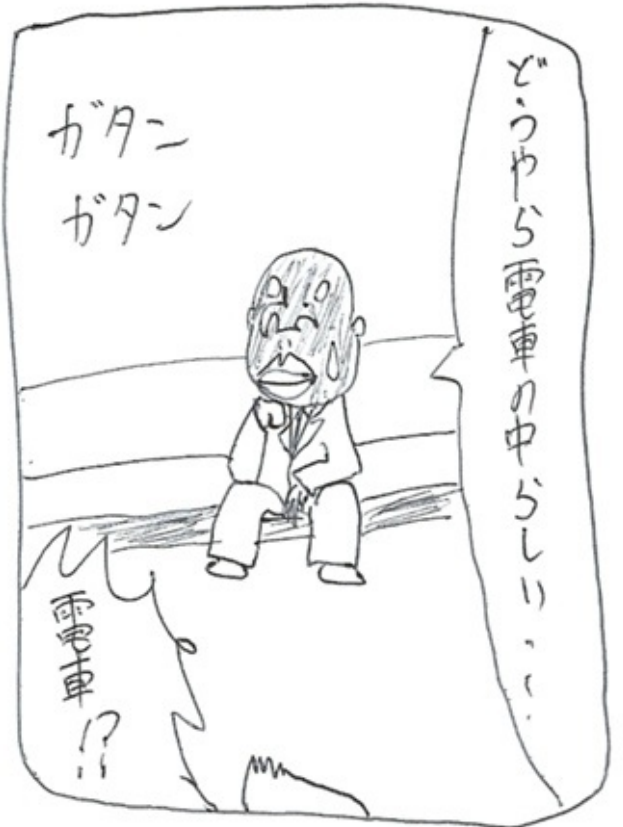 どうやら電車の中らしいっ…
ガタン
ガタン
電車!?